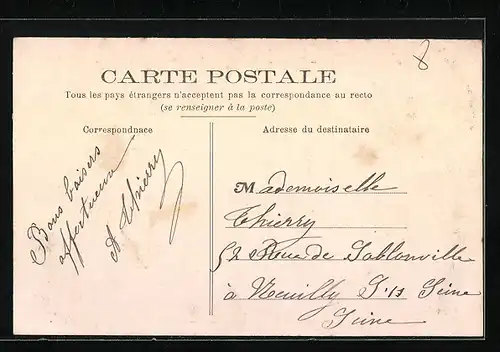 8
CARTE POSTALE
Tous les pays étrangers n'acceptent pas la correspondance au recto
(se renseigner à la poste)
Correspondnace
Bons baisers
affectueux
A Thierry
Adresse du destinataire
Mademoiselle
Thierry
52 Rue de Sablonville
à Neuilly S/s Seine
Seine